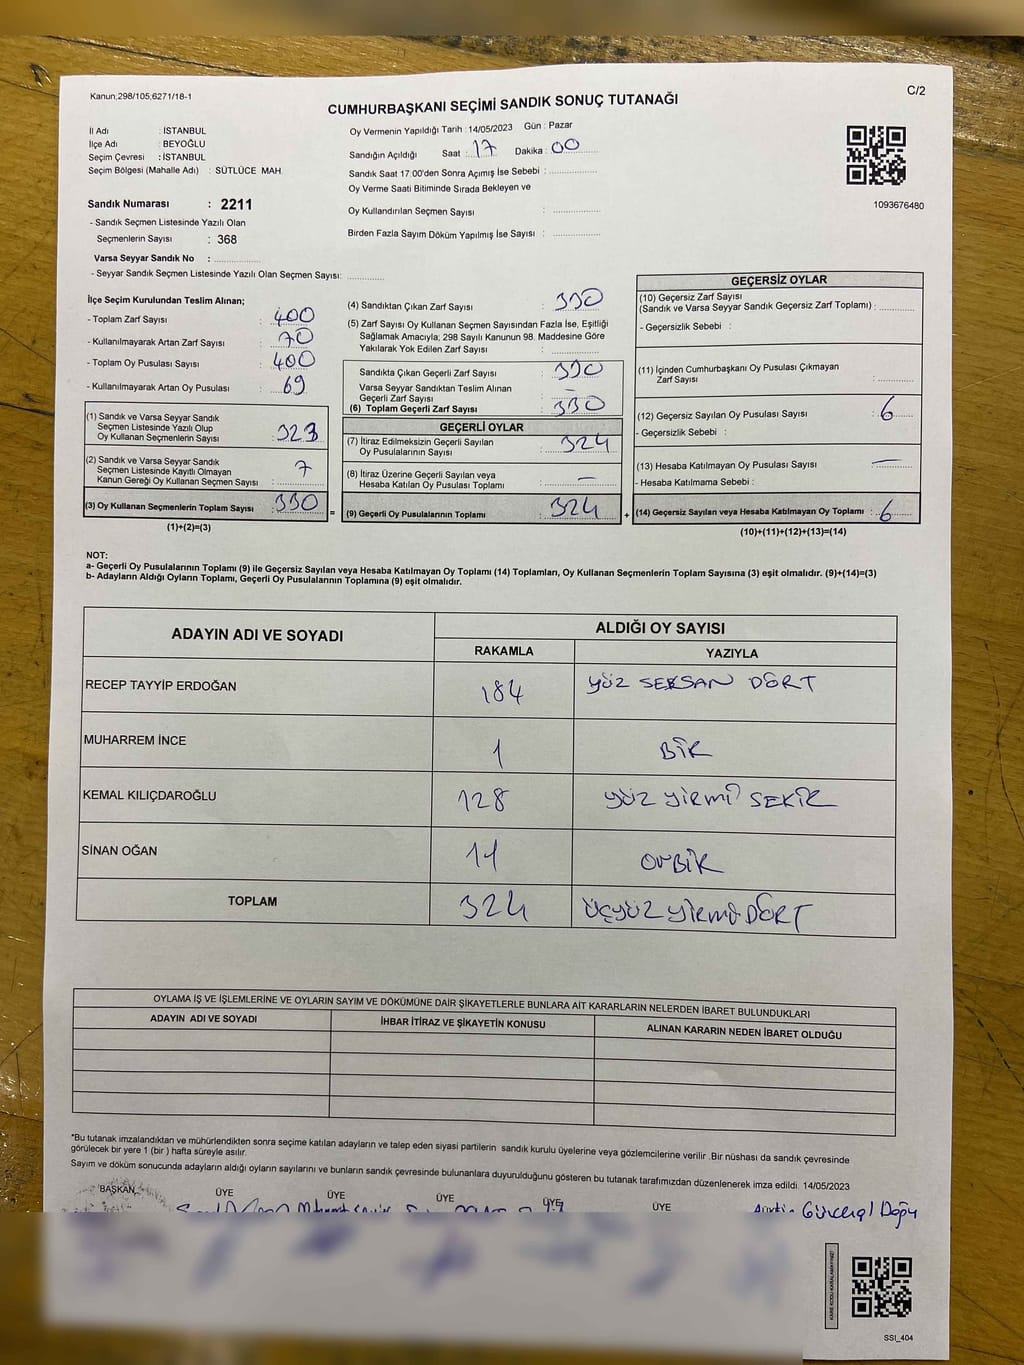 Kanun;298/105;6271/18-1
C/2
CUMHURBAŞKANI SEÇİMİ SANDIK SONUÇ TUTANAĞI
İl Adı : İSTANBUL
İlçe Adı : BEYOĞLU
Seçim Çevresi : İSTANBUL
Seçim Bölgesi (Mahalle Adı) : SÜTLÜCE MAH.
Oy Vermenin Yapıldığı Tarih : 14/05/2023 Gün : Pazar
Sandığın Açıldığı Saat : 17 Dakika : 00
Sandık Saat 17.00'den Sonra Açımış İse Sebebi :
Oy Verme Saati Bitiminde Sırada Bekleyen ve
Oy Kullandırılan Seçmen Sayısı :
Birden Fazla Sayım Döküm Yapılmış İse Sayısı :
1093676480
Sandık Numarası : 2211
- Sandık Seçmen Listesinde Yazılı Olan
Seçmenlerin Sayısı : 368
Varsa Seyyar Sandık No :
- Seyyar Sandık Seçmen Listesinde Yazılı Olan Seçmen Sayısı:
İlçe Seçim Kurulundan Teslim Alınan;
- Toplam Zarf Sayısı : 400
- Kullanılmayarak Artan Zarf Sayısı : 70
- Toplam Oy Pusulası Sayısı : 400
- Kullanılmayarak Artan Oy Pusulası : 69
(1) Sandık ve Varsa Seyyar Sandık
Seçmen Listesinde Yazılı Olup
Oy Kullanan Seçmenlerin Sayısı : 323
(2) Sandık ve Varsa Seyyar Sandık
Seçmen Listesinde Kayıtlı Olmayan
Kanun Gereği Oy Kullanan Seçmen Sayısı : 7
(3) Oy Kullanan Seçmenlerin Toplam Sayısı : 330
(1)+(2)=(3)
(4) Sandıktan Çıkan Zarf Sayısı : 330
(5) Zarf Sayısı Oy Kullanan Seçmen Sayısından Fazla İse, Eşitliği
Sağlamak Amacıyla; 298 Sayılı Kanunun 98. Maddesine Göre
Yakılarak Yok Edilen Zarf Sayısı :
Sandıkta Çıkan Geçerli Zarf Sayısı : 330
Varsa Seyyar Sandıktan Teslim Alınan
Geçerli Zarf Sayısı : –
(6) Toplam Geçerli Zarf Sayısı : 330
GEÇERLİ OYLAR
(7) İtiraz Edilmeksizin Geçerli Sayılan
Oy Pusulalarının Sayısı : 324
(8) İtiraz Üzerine Geçerli Sayılan veya
Hesaba Katılan Oy Pusulası Toplamı : –
= (9) Geçerli Oy Pusulalarının Toplamı : 324
GEÇERSİZ OYLAR
(10) Geçersiz Zarf Sayısı
(Sandık ve Varsa Seyyar Sandık Geçersiz Zarf Toplamı) :
- Geçersizlik Sebebi :
(11) İçinden Cumhurbaşkanı Oy Pusulası Çıkmayan
Zarf Sayısı :
(12) Geçersiz Sayılan Oy Pusulası Sayısı : 6
- Geçersizlik Sebebi :
(13) Hesaba Katılmayan Oy Pusulası Sayısı : –
- Hesaba Katılmama Sebebi :
+ (14) Geçersiz Sayılan veya Hesaba Katılmayan Oy Toplamı : 6
(10)+(11)+(12)+(13)=(14)
NOT:
a- Geçerli Oy Pusulalarının Toplamı (9) ile Geçersiz Sayılan veya Hesaba Katılmayan Oy Toplamı (14) Toplamları, Oy Kullanan Seçmenlerin Toplam Sayısına (3) eşit olmalıdır. (9)+(14)=(3)
b- Adayların Aldığı Oyların Toplamı, Geçerli Oy Pusulalarının Toplamına (9) eşit olmalıdır.
ADAYIN ADI VE SOYADI ALDIĞI OY SAYISI
RAKAMLA YAZIYLA
RECEP TAYYİP ERDOĞAN 184 YÜZ SEKSAN DÖRT
MUHARREM İNCE 1 BİR
KEMAL KILIÇDAROĞLU 128 YÜZ YİRMİ SEKİZ
SİNAN OĞAN 11 ONBİR
TOPLAM 324 ÜÇYÜZ YİRMİ DÖRT
OYLAMA İŞ VE İŞLEMLERİNE VE OYLARIN SAYIM VE DÖKÜMÜNE DAİR ŞİKAYETLERLE BUNLARA AİT KARARLARIN NELERDEN İBARET BULUNDUKLARI
ADAYIN ADI VE SOYADI İHBAR İTİRAZ VE ŞİKAYETİN KONUSU ALINAN KARARIN NEDEN İBARET OLDUĞU
*Bu tutanak imzalandıktan ve mühürlendikten sonra seçime katılan adayların ve talep eden siyasi partilerin sandık kurulu üyelerine veya gözlemcilerine verilir .Bir nüshası da sandık çevresinde
görülecek bir yere 1 (bir ) hafta süreyle asılır.
Sayım ve döküm sonucunda adayların aldığı oyların sayılarını ve bunların sandık çevresinde bulunanlara duyurulduğunu gösteren bu tutanak tarafımızdan düzenlenerek imza edildi. 14/05/2023
BAŞKAN ÜYE ÜYE ÜYE ÜYE ÜYE
SSI_404